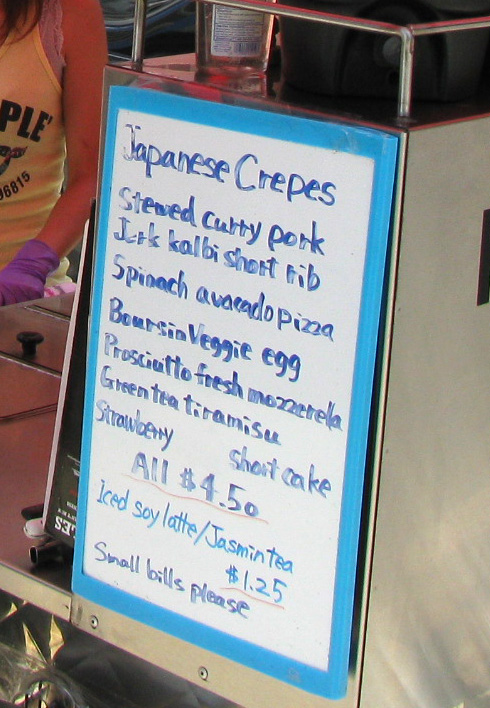 PLE'
96815
Japanese Crepes
Stewed curry pork
Jerk kalbi short rib
Spinach avocado pizza
Boursin Veggie egg
Prosciutto fresh mozzerella
Green tea tiramisu
Strawberry Short cake
All $4.50
Iced soy latte/Jasmin tea
$1.25
Small bills please